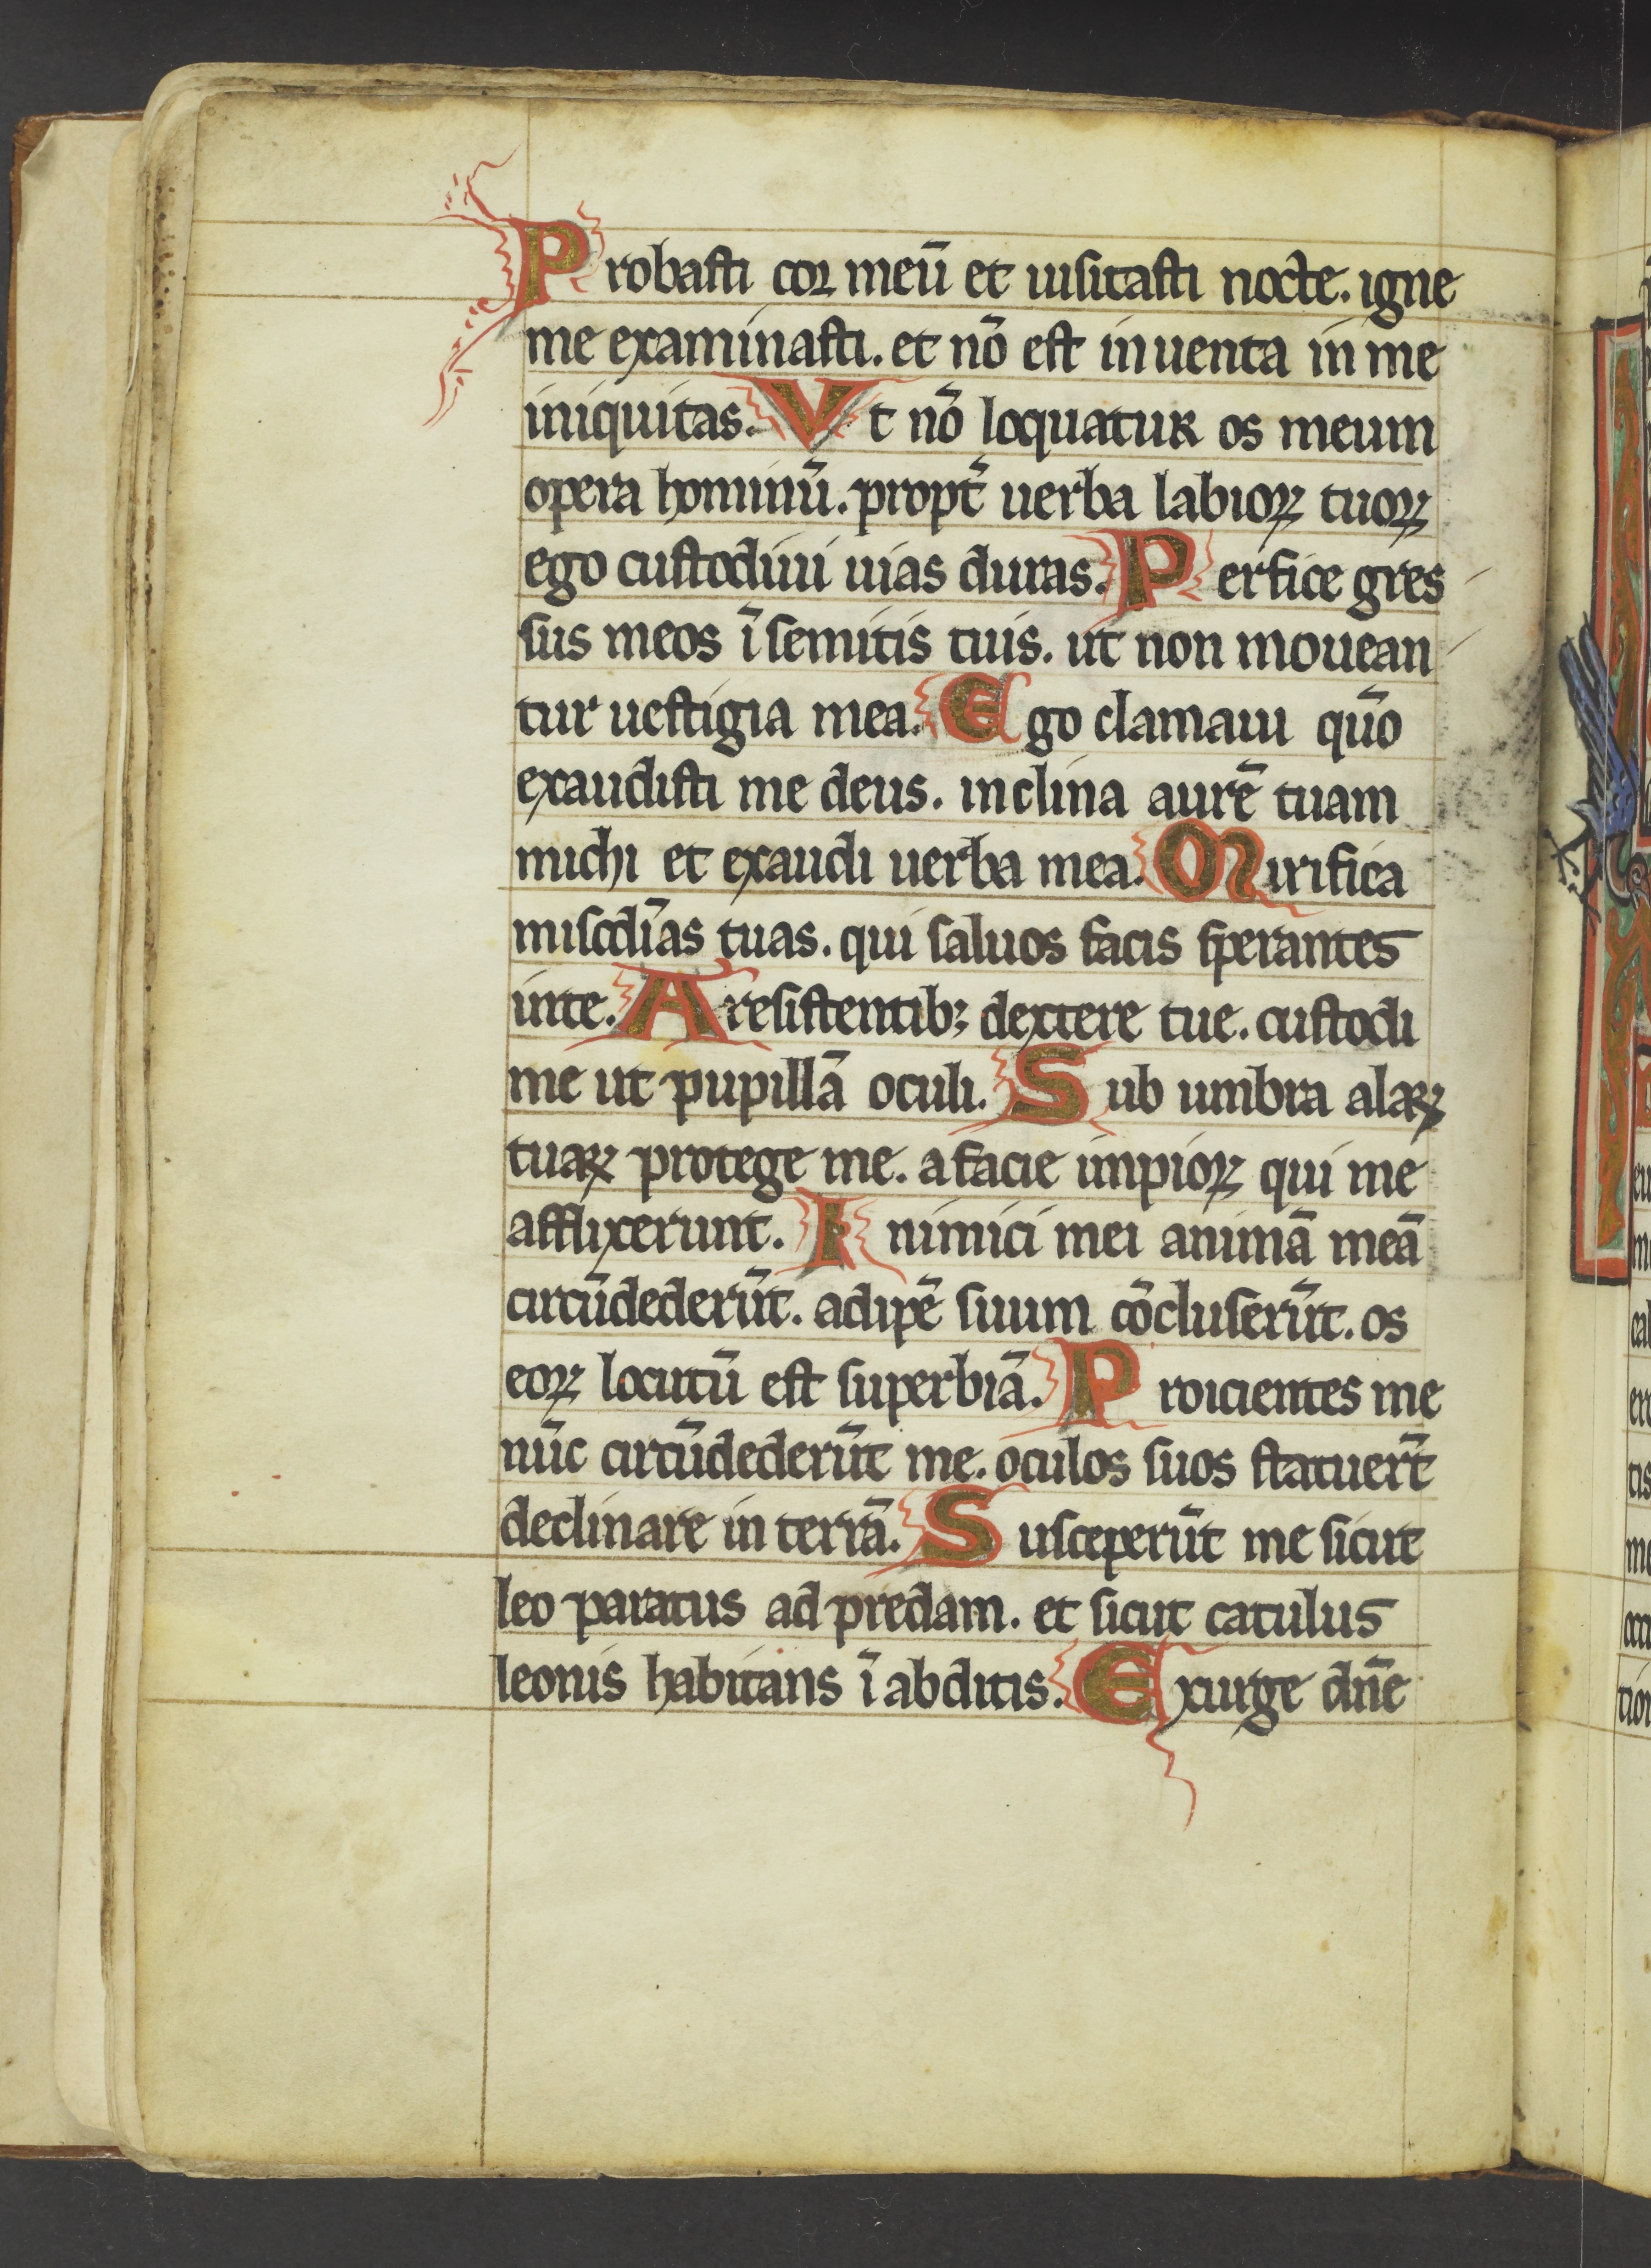 Probasti cor meū et uisitasti nocte. igne
me examinasti. et nō est inuenta in me
iniquitas. Vt nō loquatur os meum
opera hominū. propt̄ uerba labioꝝ tuoꝝ
ego custodiui uias duras. Perfice gres
sus meos ī semitis tuis. ut non mouean
tur uestigia mea. Ego clamaui qūo
exaudisti me deus. inclina aurē tuam
michi et exaudi uerba mea. Mirifica
miscdīas tuas. qui saluos facis sperantes
inte. A resistentibꝫ dextere tue. custodi
me ut pupillā oculi. Sub umbra alaꝝ
tuaꝝ protege me. a facie impioꝝ qui me
afflixerunt. Inimici mei animā meā
circūdederūt. adipē suum cōcluserūt. os
eoꝝ locutū est superbiā. Proicientes me
nūc circūdederūt me. oculos suos statuer̄t
declinare in terrā. Susceperūt me sicut
leo paratus ad predam. et sicut catulus
leonis habitans ī abditis. Exurge dn̄e